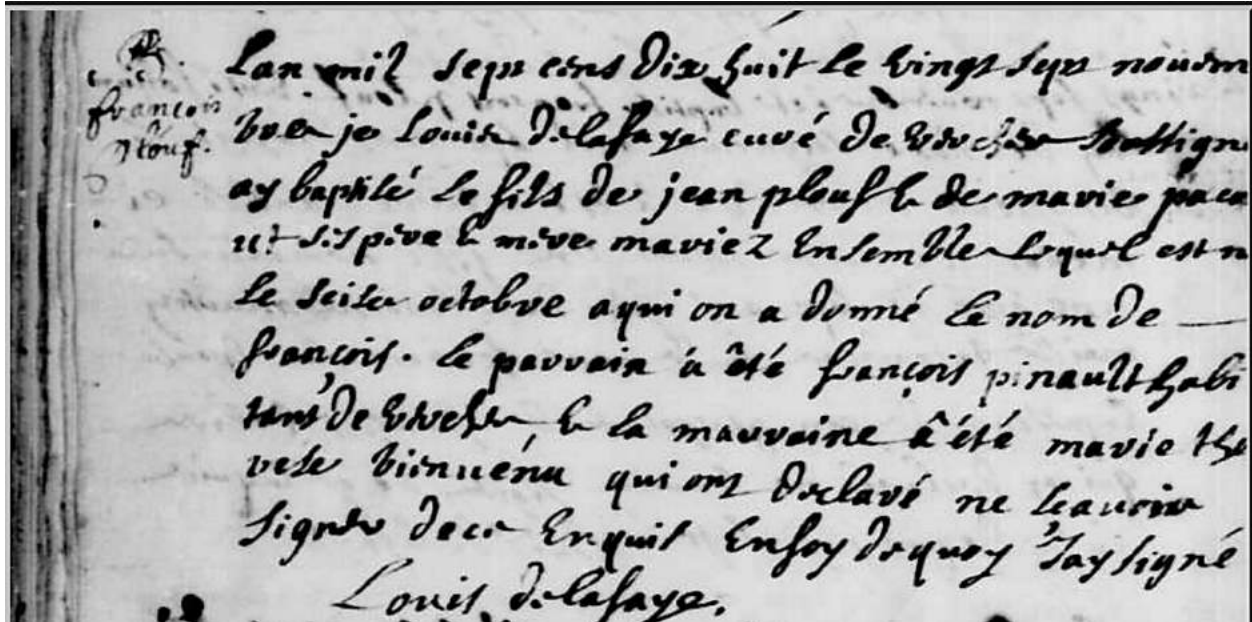 françois
Plouf.
Lan mil sept cens dix huit le vingt sept novem
bre je Louis delafaye curé de vercher soussigné
ay baptisé le fils de jean plouf & de marie paca
ut ses pere & mere mariez Ensemble lequel est n
le seise octobre a qui on a donné le nom de —
françois. le parrain a été françois pinault habi
tant de vercher & la marraine a été marie the
rese bienuénu qui ont declaré ne scauoir
signer de ce Enquis En foy de quoy J'ay signé
Louis delafaye.